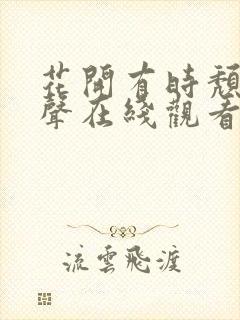 花開有時頹
聲在綫觀看
流雲飛渡